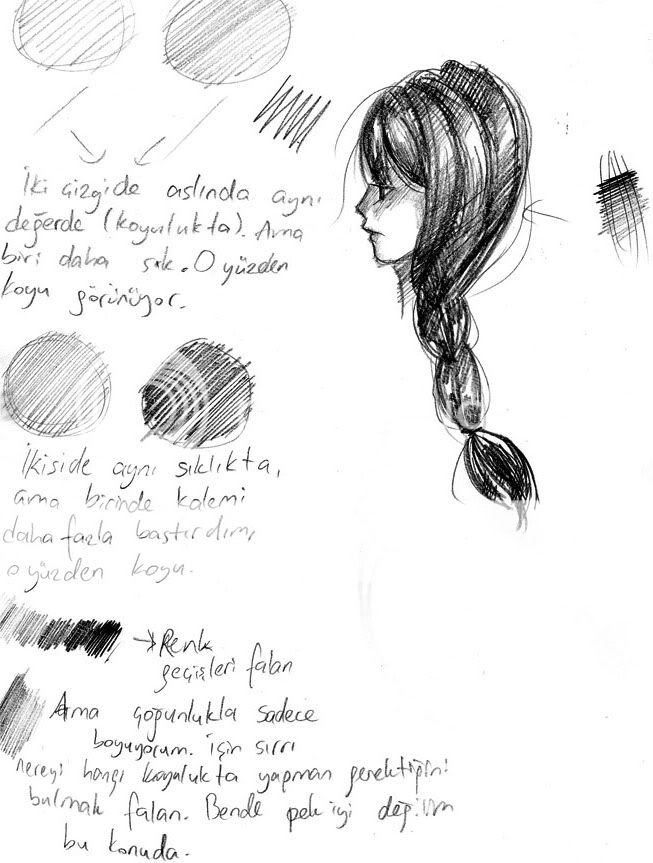 İki çizgide aslında aynı
değerde (koyulukta). Ama
biri daha sık. O yüzden
koyu görünüyor.
İkiside aynı sıklıkta,
ama birinde kalemi
daha fazla bastırdım,
o yüzden koyu.
Renk
geçişleri falan
Ama çoğunlukla sadece
boyuyorum. İşin sırrı
nereyi hangi koyulukta yapman gerektiğini
bulmak falan. Bende pek iyi değilim
bu konuda.